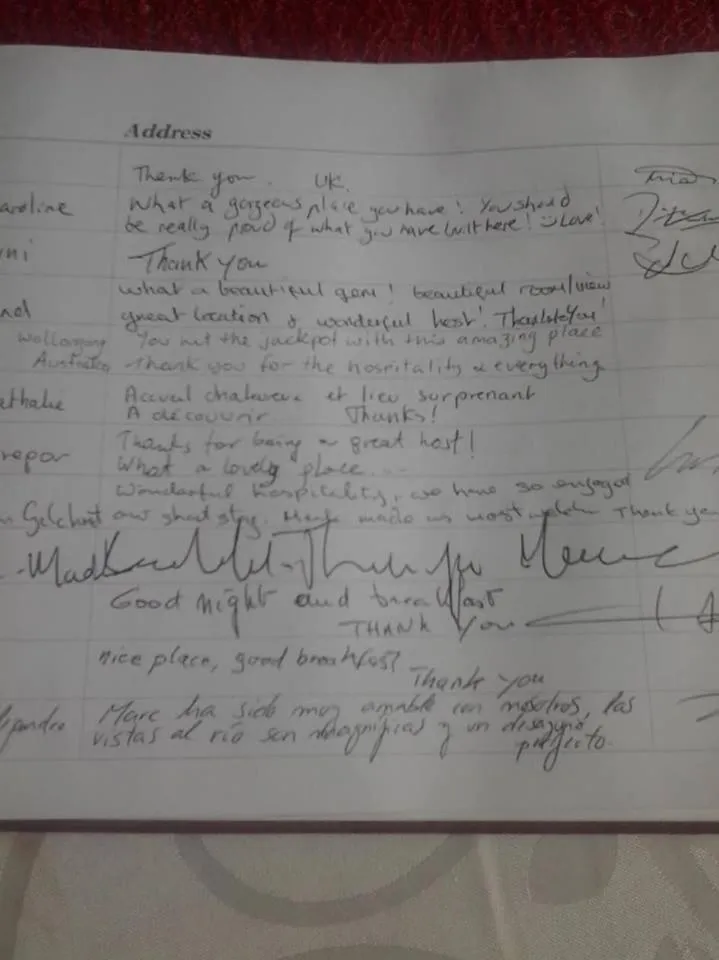 Address
Thank you. UK.
aroline What a gorgeous place you have! You should
be really proud of what you have built here! Love!
ni Thank you
what a beautiful gem! beautiful room/view
great location & wonderful host! Thank you!
Wollongong You hit the jackpot with this amazing place
Australia Thank you for the hospitality & everything
athalie Accueil chaleureux et lieu surprenant
A découvrir Thanks!
repor Thanks for being a great host!
What a lovely place...
Wonderful hospitality, we have so enjoyed
our short stay. made us most welcome Thank you
Good night and breakfast
THANK you
nice place, good breakfast
Thank you
ejandro Marc ha sido muy amable con nosotros, las
vistas al río son magnificas y un desayuno
perfecto.